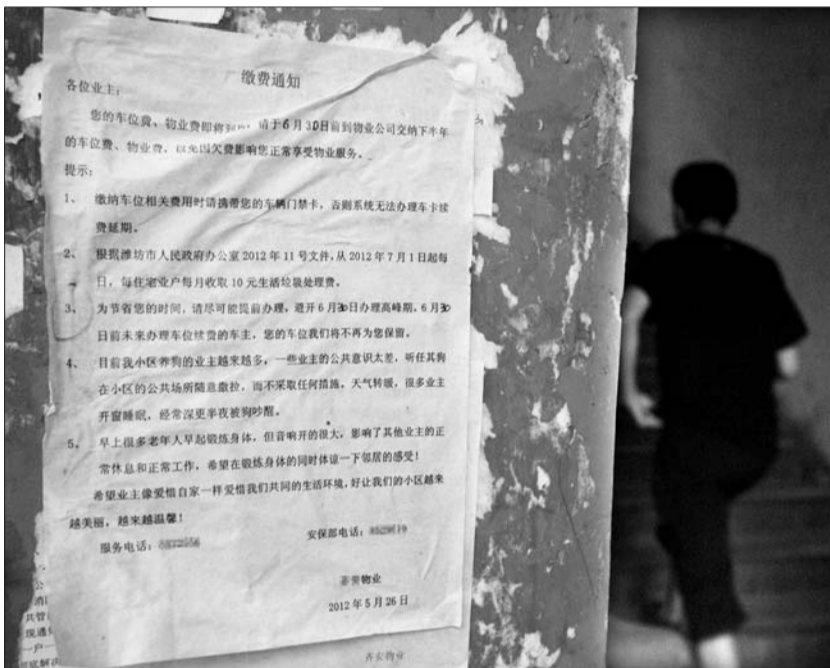 缴费通知
各位业主:
您的车位费、物业费即将到期,请于6月30日前到物业公司交纳下半年
的车位费、物业费,以免因欠费影响您正常享受物业服务。
提示:
1、 缴纳车位相关费用时请携带您的车辆门禁卡,否则系统无法办理车卡续
费延期。
2、 根据潍坊市人民政府办公室2012年11号文件,从2012年7月1日起每
日,每住宅业户每月收取10元生活垃圾处理费。
3、 为节省您的时间,请尽可能提前办理,避开6月30日办理高峰期,6月30
日前未来办理车位续费的车主,您的车位我们将不再为您保留。
4、 目前我小区养狗的业主越来越多,一些业主的公共意识太差,听任其狗
在小区的公共场所随意撒拉,而不采取任何措施。天气转暖,很多业主
开窗睡眠,经常深更半夜被狗吵醒。
5、 早上很多老年人早起锻炼身体,但音响开的很大,影响了其他业主的正
常休息和正常工作,希望在锻炼身体的同时体谅一下邻居的感受!
希望业主像爱惜自家一样爱惜我们共同的生活环境,好让我们的小区越来
越美丽,越来越温馨!
服务电话:
安保部电话:
物业
2012年5月26日
公
消
共管
现通
一户一
彻底解决
物业